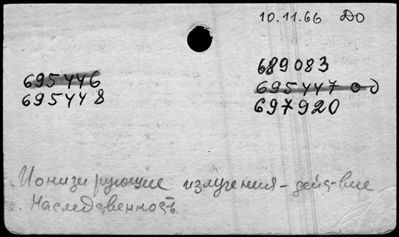 10.11.66 До
695446
695448
689083
695447 од
697920
Ионизирующие излучения - действие
г. Наследственность